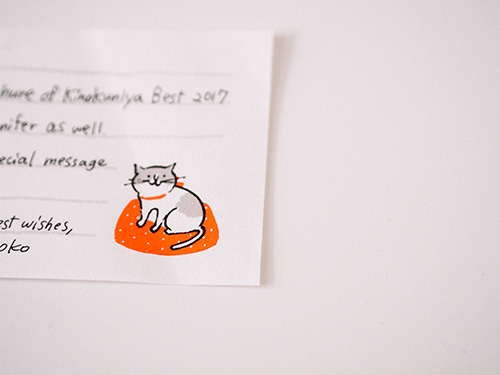 hure of Kinokuniya Best 2017.
nifer as well.
ecial message
est wishes,
oko